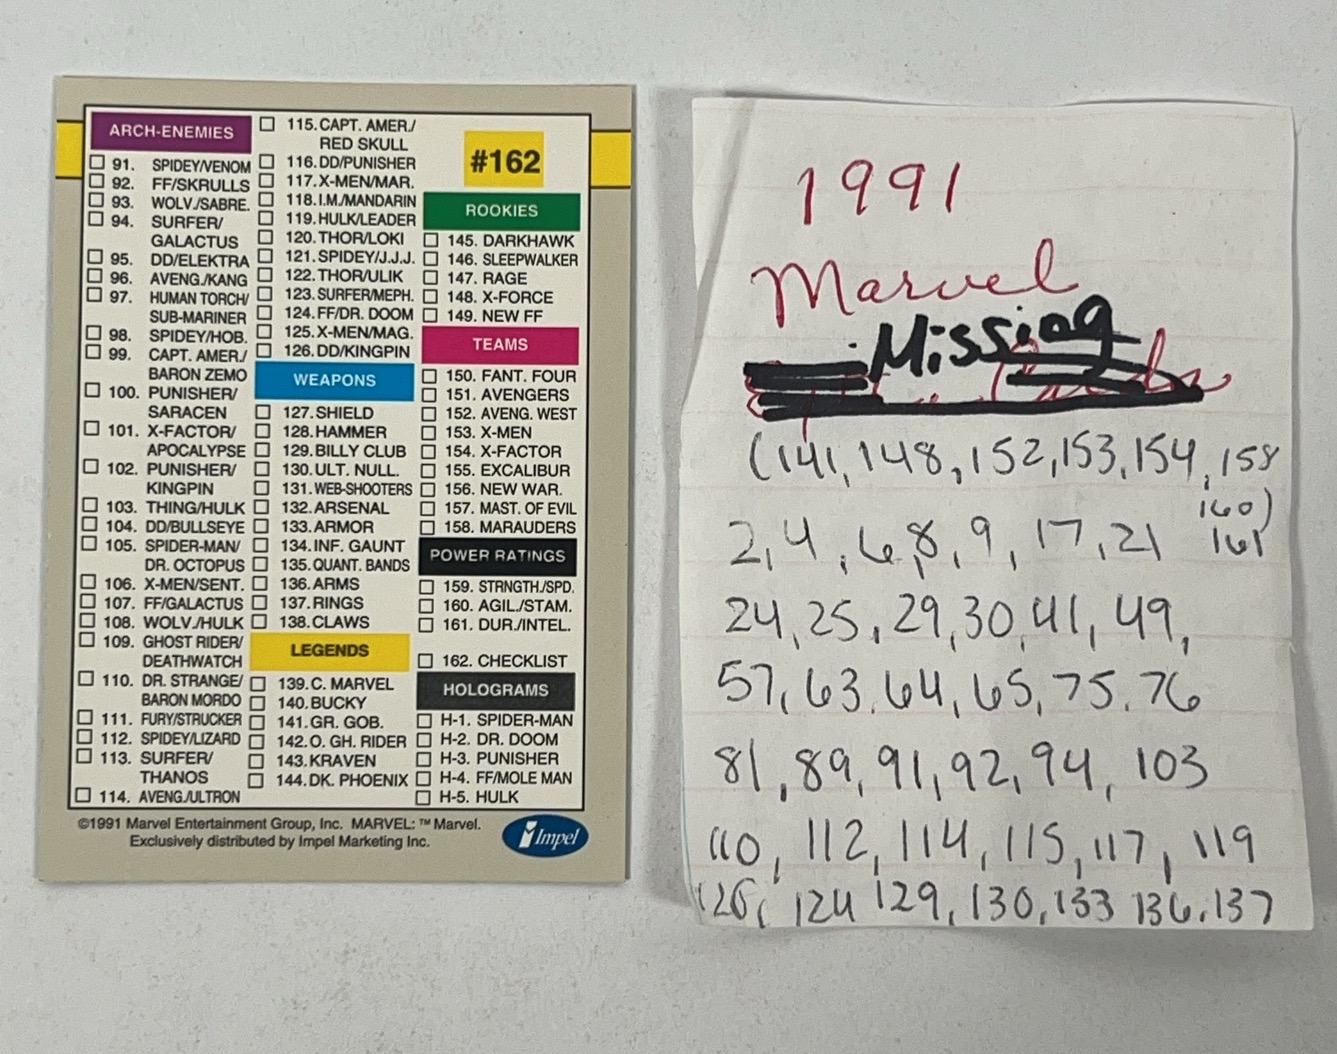 ARCH-ENEMIES
91. SPIDEY/VENOM
92. FF/SKRULLS
93. WOLV./SABRE.
94. SURFER/
GALACTUS
95. DD/ELEKTRA
96. AVENG./KANG
97. HUMAN TORCH/
SUB-MARINER
98. SPIDEY/HOB.
99. CAPT. AMER./
BARON ZEMO
100. PUNISHER/
SARACEN
101. X-FACTOR/
APOCALYPSE
102. PUNISHER/
KINGPIN
103. THING/HULK
104. DD/BULLSEYE
105. SPIDER-MAN/
DR. OCTOPUS
106. X-MEN/SENT.
107. FF/GALACTUS
108. WOLV./HULK
109. GHOST RIDER/
DEATHWATCH
110. DR. STRANGE/
BARON MORDO
111. FURY/STRUCKER
112. SPIDEY/LIZARD
113. SURFER/
THANOS
114. AVENG./ULTRON
115. CAPT. AMER./
RED SKULL
116. DD/PUNISHER
117. X-MEN/MAR.
118. I.M./MANDARIN
119. HULK/LEADER
120. THOR/LOKI
121. SPIDEY/J.J.J.
122. THOR/ULIK
123. SURFER/MEPH.
124. FF/DR. DOOM
125. X-MEN/MAG.
126. DD/KINGPIN
WEAPONS
127. SHIELD
128. HAMMER
129. BILLY CLUB
130. ULT. NULL.
131. WEB-SHOOTERS
132. ARSENAL
133. ARMOR
134. INF. GAUNT
135. QUANT. BANDS
136. ARMS
137. RINGS
138. CLAWS
LEGENDS
139. C. MARVEL
140. BUCKY
141. GR. GOB.
142. O. GH. RIDER
143. KRAVEN
144. DK. PHOENIX
#162
ROOKIES
145. DARKHAWK
146. SLEEPWALKER
147. RAGE
148. X-FORCE
149. NEW FF
TEAMS
150. FANT. FOUR
151. AVENGERS
152. AVENG. WEST
153. X-MEN
154. X-FACTOR
155. EXCALIBUR
156. NEW WAR.
157. MAST. OF EVIL
158. MARAUDERS
POWER RATINGS
159. STRNGTH./SPD.
160. AGIL./STAM.
161. DUR./INTEL.
162. CHECKLIST
HOLOGRAMS
H-1. SPIDER-MAN
H-2. DR. DOOM
H-3. PUNISHER
H-4. FF/MOLE MAN
H-5. HULK
©1991 Marvel Entertainment Group, Inc. MARVEL: ™ Marvel.
Exclusively distributed by Impel Marketing Inc.
Impel
1991
Marvel
Missing
(141, 148, 152, 153, 154, 158
160)
2, 4, 6, 8, 9, 17, 21 161
24, 25, 29, 30, 41, 49,
57, 63, 64, 65, 75, 76
81, 89, 91, 92, 94, 103
110, 112, 114, 115, 117, 119
124 129, 130, 133 136, 137